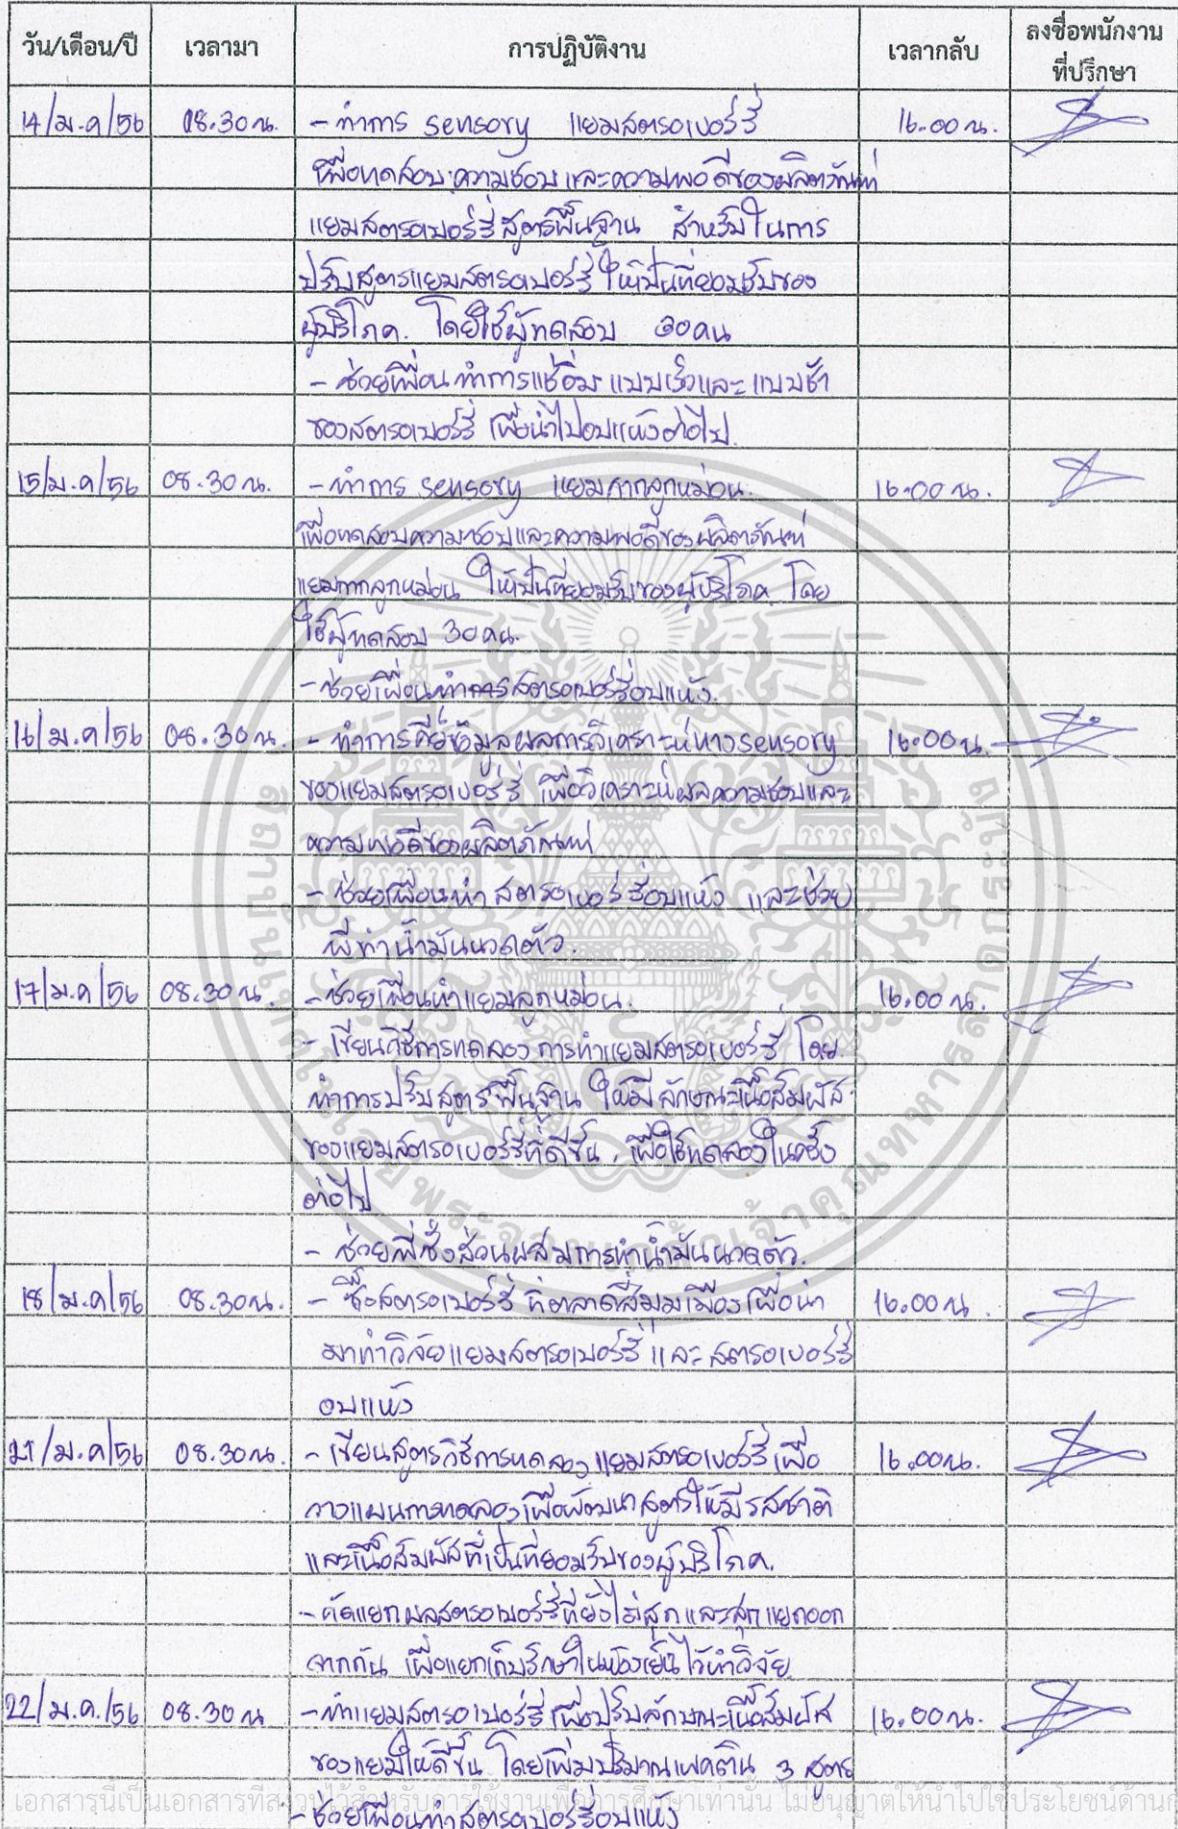 วัน/เดือน/ปี เวลามา การปฏิบัติงาน เวลากลับ ลงชื่อพนักงาน
ที่ปรึกษา
14/ม.ค/56 08.30น. - ทำการ sensory แยมสตรอเบอร์รี่ 16.00น.
เพื่อทดสอบความชอบและความพอดีของผลิตภัณฑ์
แยมสตรอเบอร์รี่สูตรพื้นฐาน สำหรับในการ
ปรับสูตรแยมสตรอเบอร์รี่ ให้เป็นที่ยอมรับของ
ผู้บริโภค. โดยใช้ผู้ทดสอบ 30คน
- ช่วยเพื่อนทำการแช่อิ่ม แบบเร็วและแบบช้า
ของสตรอเบอร์รี่ เพื่อนำไปอบแห้งต่อไป.
15/ม.ค/56 08.30น. - ทำการ sensory แยมกากลูกหม่อน. 16.00น.
เพื่อทดสอบความชอบและความพอดีของผลิตภัณฑ์
แยมกากลูกหม่อน ให้เป็นที่ยอมรับของผู้บริโภค โดย
ใช้ผู้ทดสอบ 30คน.
- ช่วยเพื่อนทำการสตรอเบอร์รี่อบแห้ง.
16/ม.ค/56 08.30น. - ทำการคีย์ข้อมูลผลการวิเคราะห์ทางsensory 16.00น.
ของแยมสตรอเบอร์รี่ เพื่อวิเคราะห์ผลความชอบและ
ความพอดีของผลิตภัณฑ์
- ช่วยเพื่อนทำ สตรอเบอร์รี่อบแห้ง และช่วย
พี่ทำน้ำมันนวดตัว.
17/ม.ค/56 08.30น. - ช่วยเพื่อนทำแยมลูกหม่อน. 16.00น.
- เขียนวิธีการทดลองการทำแยมสตรอเบอร์รี่ โดย
ทำการปรับสูตรพื้นฐาน ให้มีลักษณะเนื้อสัมผัส
ของแยมสตรอเบอร์รี่ที่ดีขึ้น. เพื่อใช้ทดลองในครั้ง
ต่อไป
- ช่วยพี่ชั่งส่วนผสมการทำน้ำมันนวดตัว.
18/ม.ค/56 08.30น. - ซื้อสตรอเบอร์รี่ ที่ตลาดสี่มุมเมืองเพื่อนำ 16.00น.
มาทำวิจัยแยมสตรอเบอร์รี่ และสตรอเบอร์รี่
อบแห้ง
21/ม.ค/56 08.30น. - เขียนสูตรวิธีการทดลองแยมสตรอเบอร์รี่ เพื่อ 16.00น.
วางแผนการทดลองเพื่อพัฒนาสูตรให้มีรสชาติ
และเนื้อสัมผัสที่เป็นที่ยอมรับของผู้บริโภค.
- คัดแยกผลสตรอเบอร์รี่ที่ยังไม่สุก และสุกแยกออก
จากกัน เพื่อแยกเก็บรักษาในห้องเย็นไว้ทำวิจัย
22/ม.ค./56 08.30น - ทำแยมสตรอเบอร์รี่เพื่อปรับลักษณะเนื้อสัมผัส 16.00น.
ของแยมให้ดีขึ้น โดยเพิ่มปริมาณเพคติน 3 สูตร
- ช่วยเพื่อนทำสตรอเบอร์รี่อบแห้ง